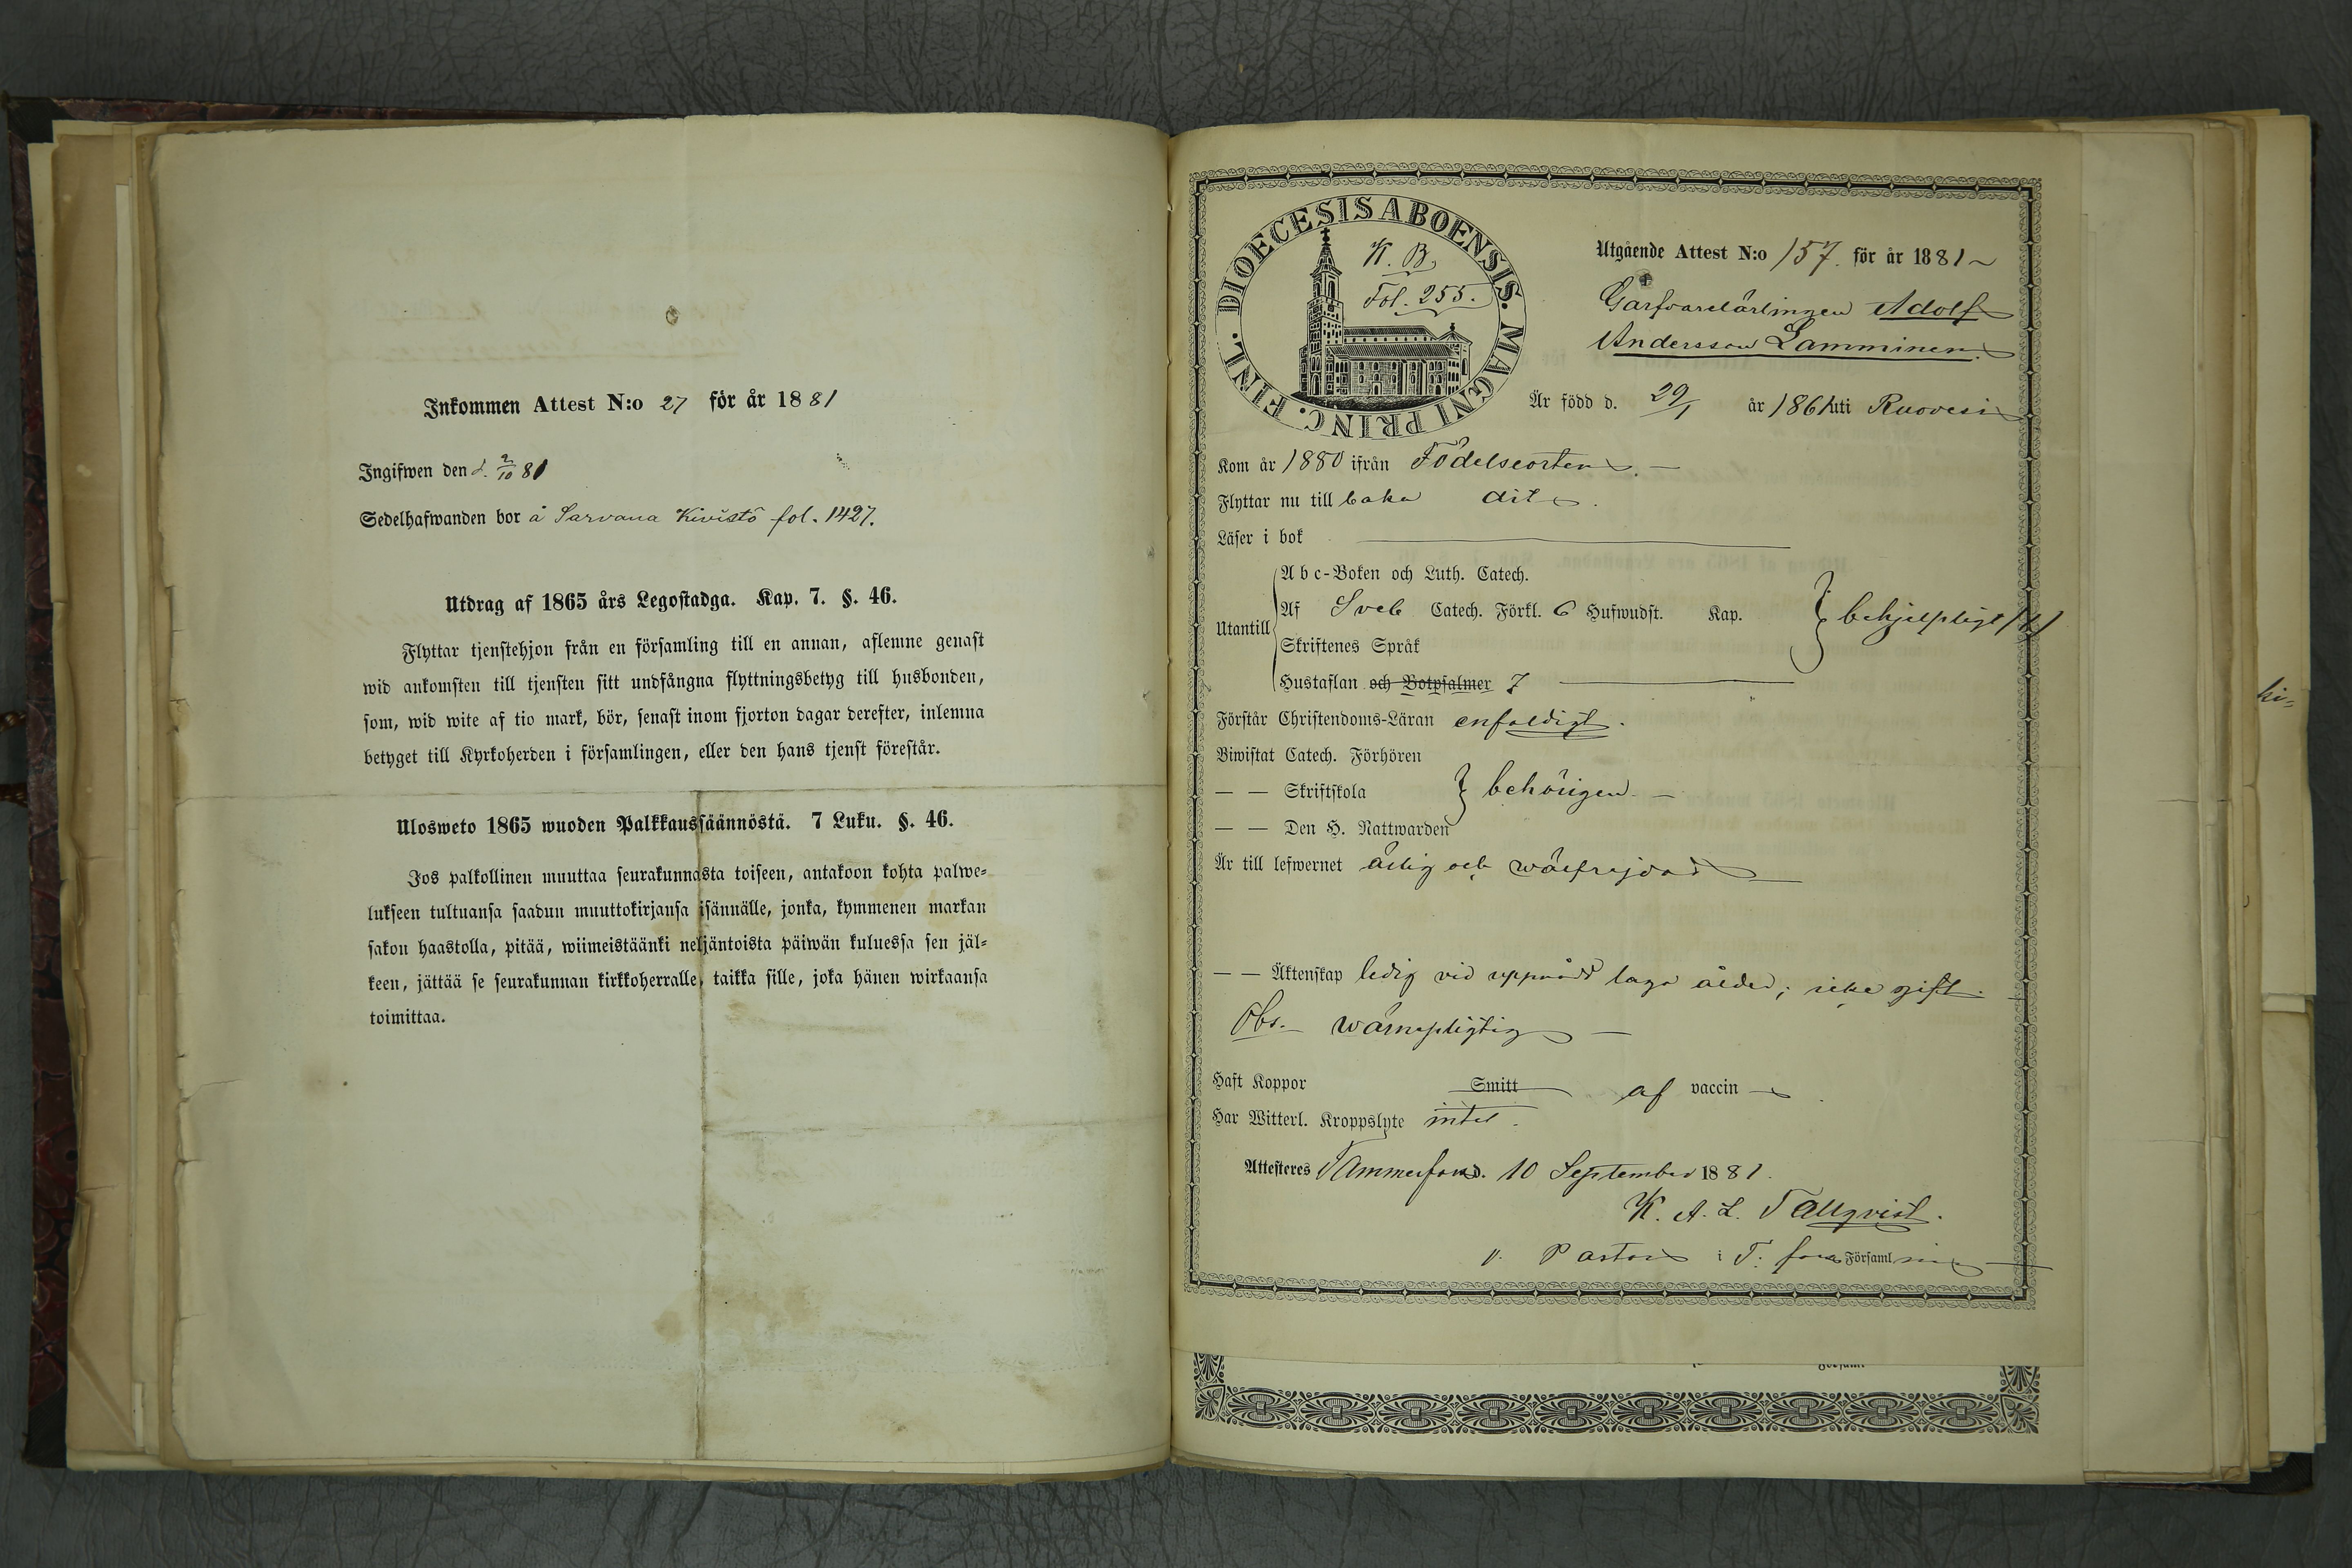 Inkommen Attest N:o 27 för år 1881
Ingifwen den d. 2/10 81
Sedelhafwanden bor å Sarvana Kivistö fol. 1427.
Utdrag af 1865 års Legostadga. Kap. 7. §. 46.
Flyttar tjenstehjon från en församling till en annan, aflemne genast
wid ankomsten till tjensten sitt undfångna flyttningsbetyg till husbonden,
som, wid wite af tio mark, bör, senast inom fjorton dagar derefter, inlemna
betyget till Kyrkoherden i församlingen, eller den hans tjenst förestår.
Ulosweto 1865 wuoden Palkkaussäännöstä. 7 Luku. §. 46.
Jos palkollinen muuttaa seurakunnasta toiseen, antakoon kohta palwe-
lukseen tultuansa saadun muuttokirjansa isännälle, jonka, kymmenen markan
sakon haastolla, pitää, wiimeistäänki neljäntoista päiwän kuluessa sen jäl-
keen, jättää se seurakunnan kirkkoherralle, taikka sille, joka hänen wirkaansa
toimittaa.
DIOECESIS ABOENSIS. MAGNI PRINC. FINL.
K. B.
Fol. 255.
Utgående Attest N:o 157. för år 1881
Garfvarelärlingen Adolf
Andersson Lamminen.
Är född d. 29/1 år 1861 uti Ruovesi
Kom år 1880 ifrån Födelseorten.
Flyttar nu till baka dit.
Läser i bok
Utantill
Abc-Boken och Luth. Catech.
Af Sveb Catech. Förkl. 6 Hufwudst. Kap.
behjelpligt
Skriftenes Språk
Hustaflan och Botpsalmer 7
Förstår Christendoms-Läran enfaldigt.
Biwistat Catech. Förhören
— — Skriftskola
behörigen.
— — Den H. Nattwarden
Är till lefwernet ärlig och wälfrejdad
— — Äktenskap ledig vid uppnådd laga ålder; icke gift.
Obs. wärnepligtig
Haft Koppor Smitt af vaccin
Har Witterl. Kroppslyte intet.
Attesteres Tammerfors d. 10 September 1881.
K. A. L. Tallqvist.
v. Pastor i T: fors Församling
hi-